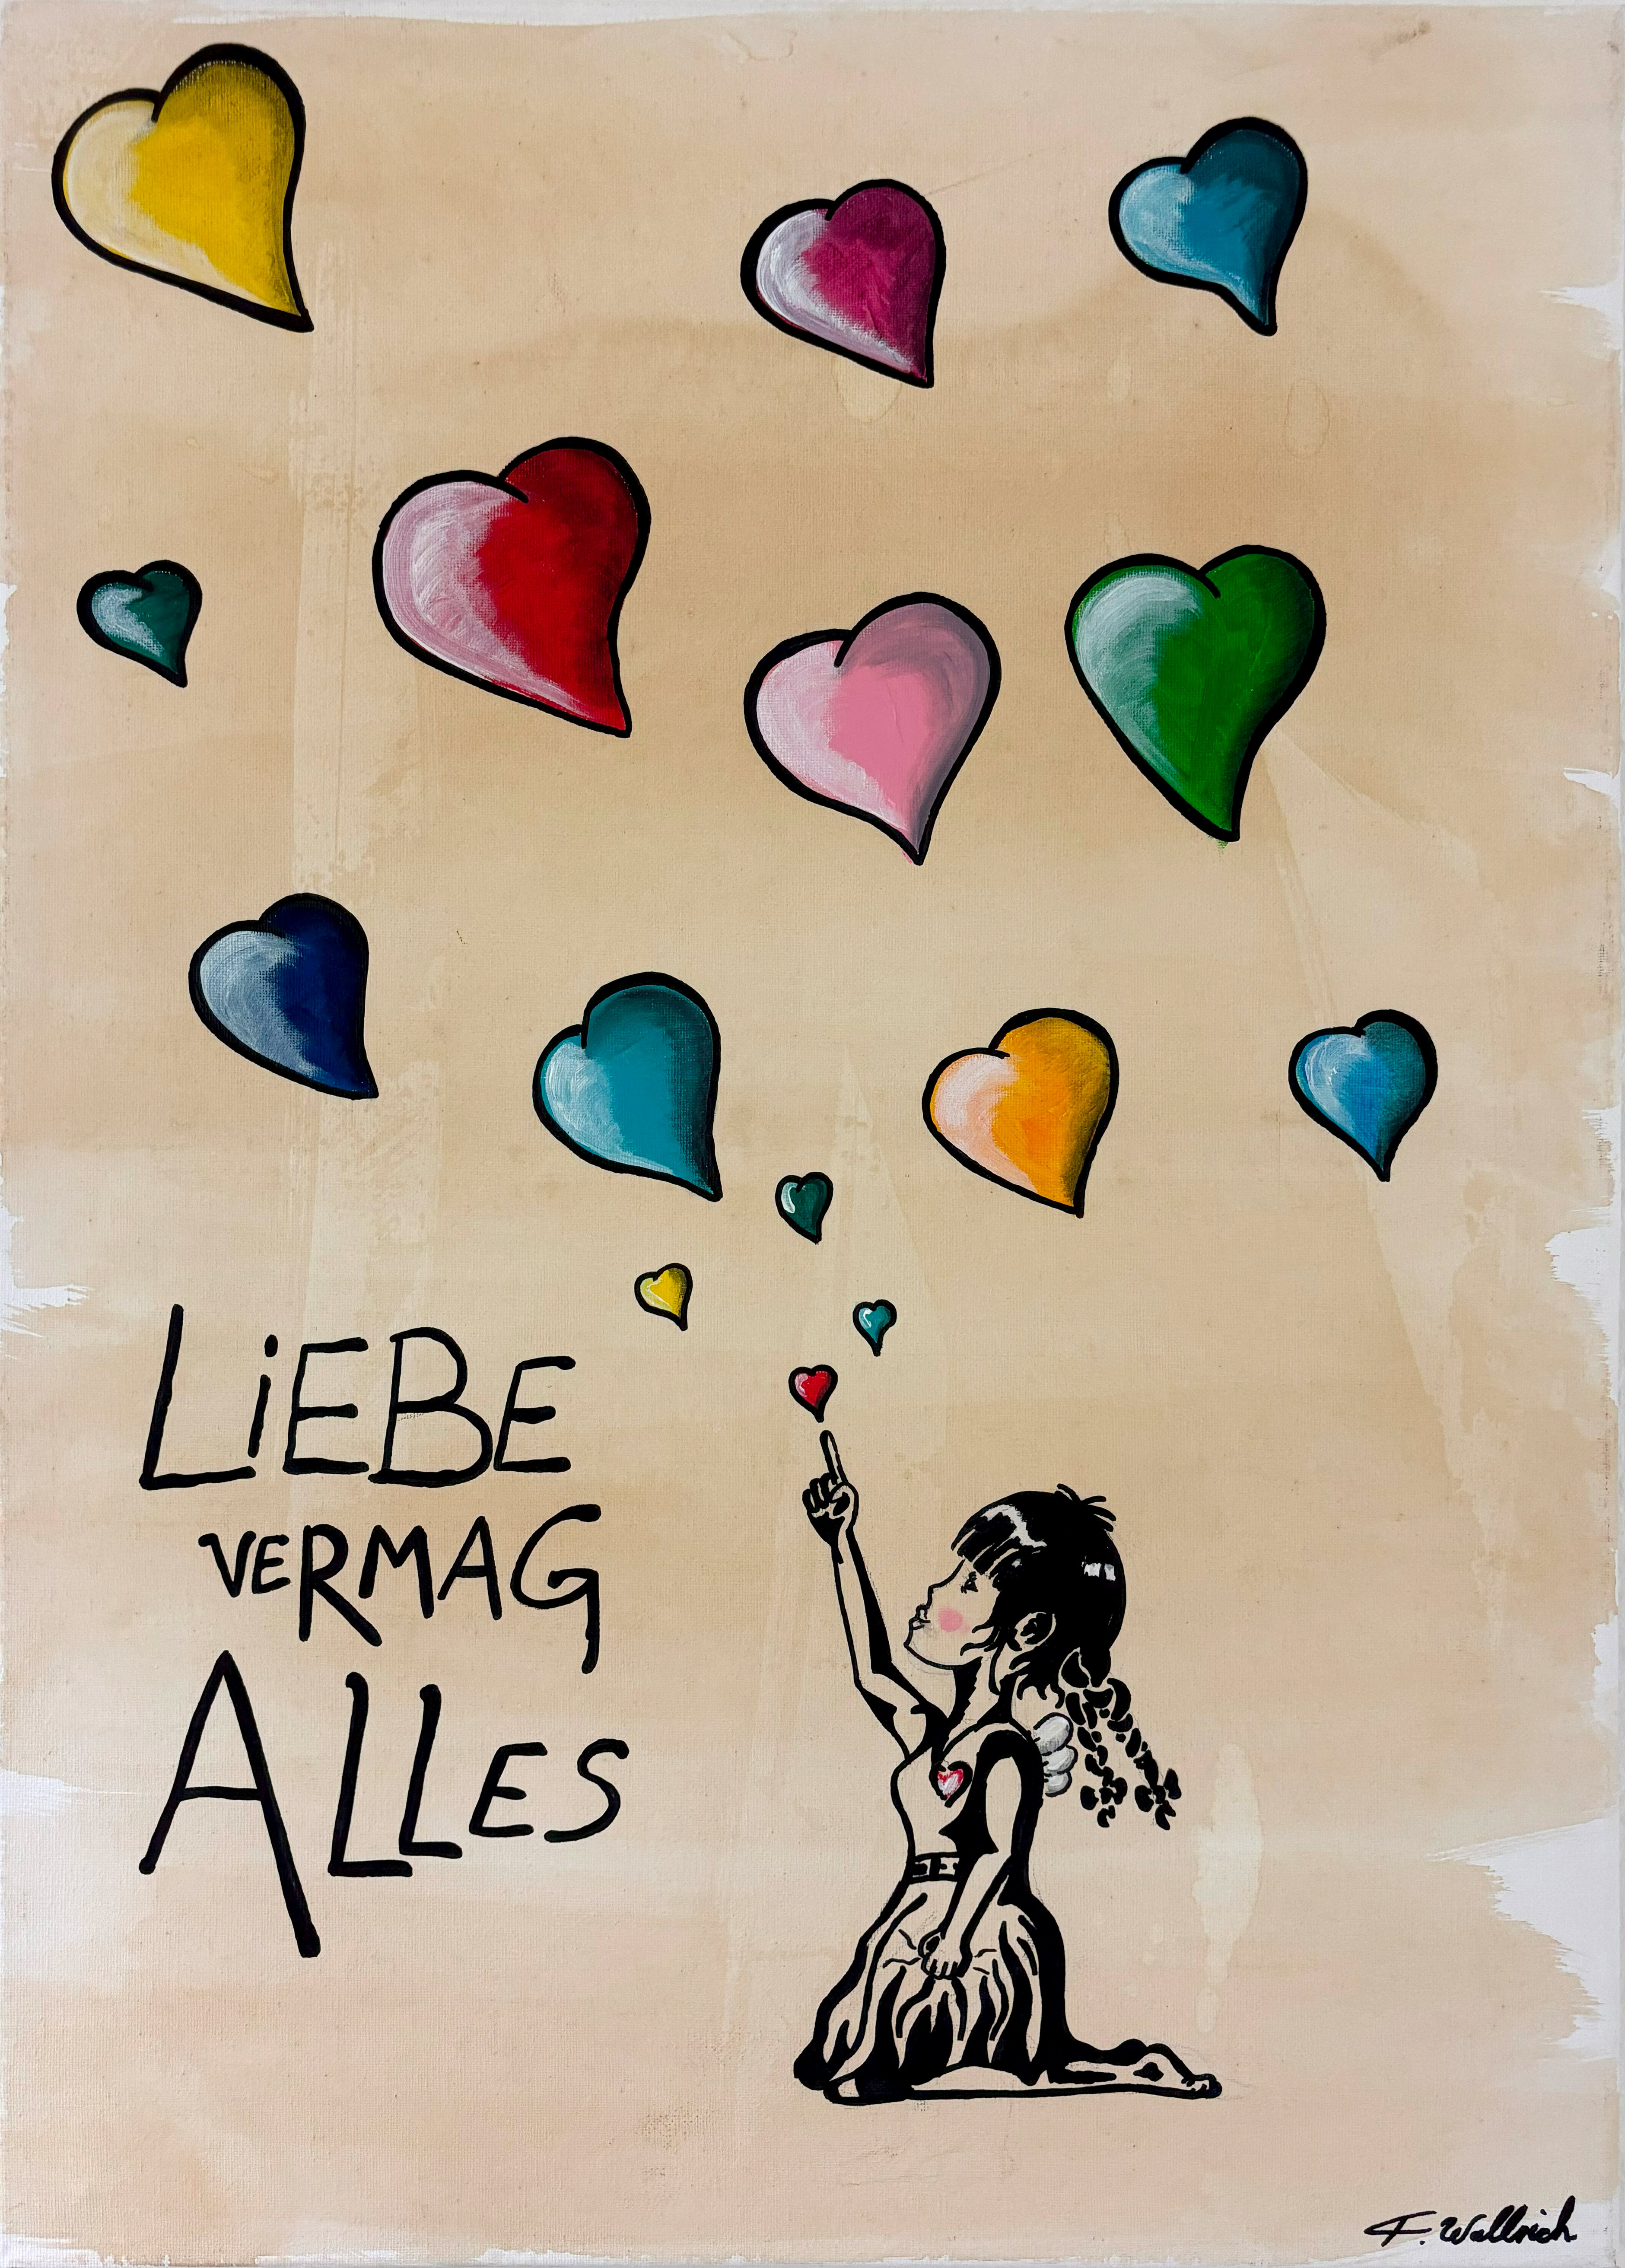 LiEBE
VERMAG
ALLES
F. Wallrich